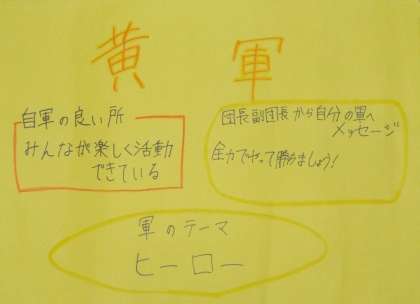 黄軍
自軍の良い所
みんなが楽しく活動
できている
団長副団長から自分の軍へ
メッセージ
全力でやって勝ちましょう!
軍のテーマ
ヒーロー